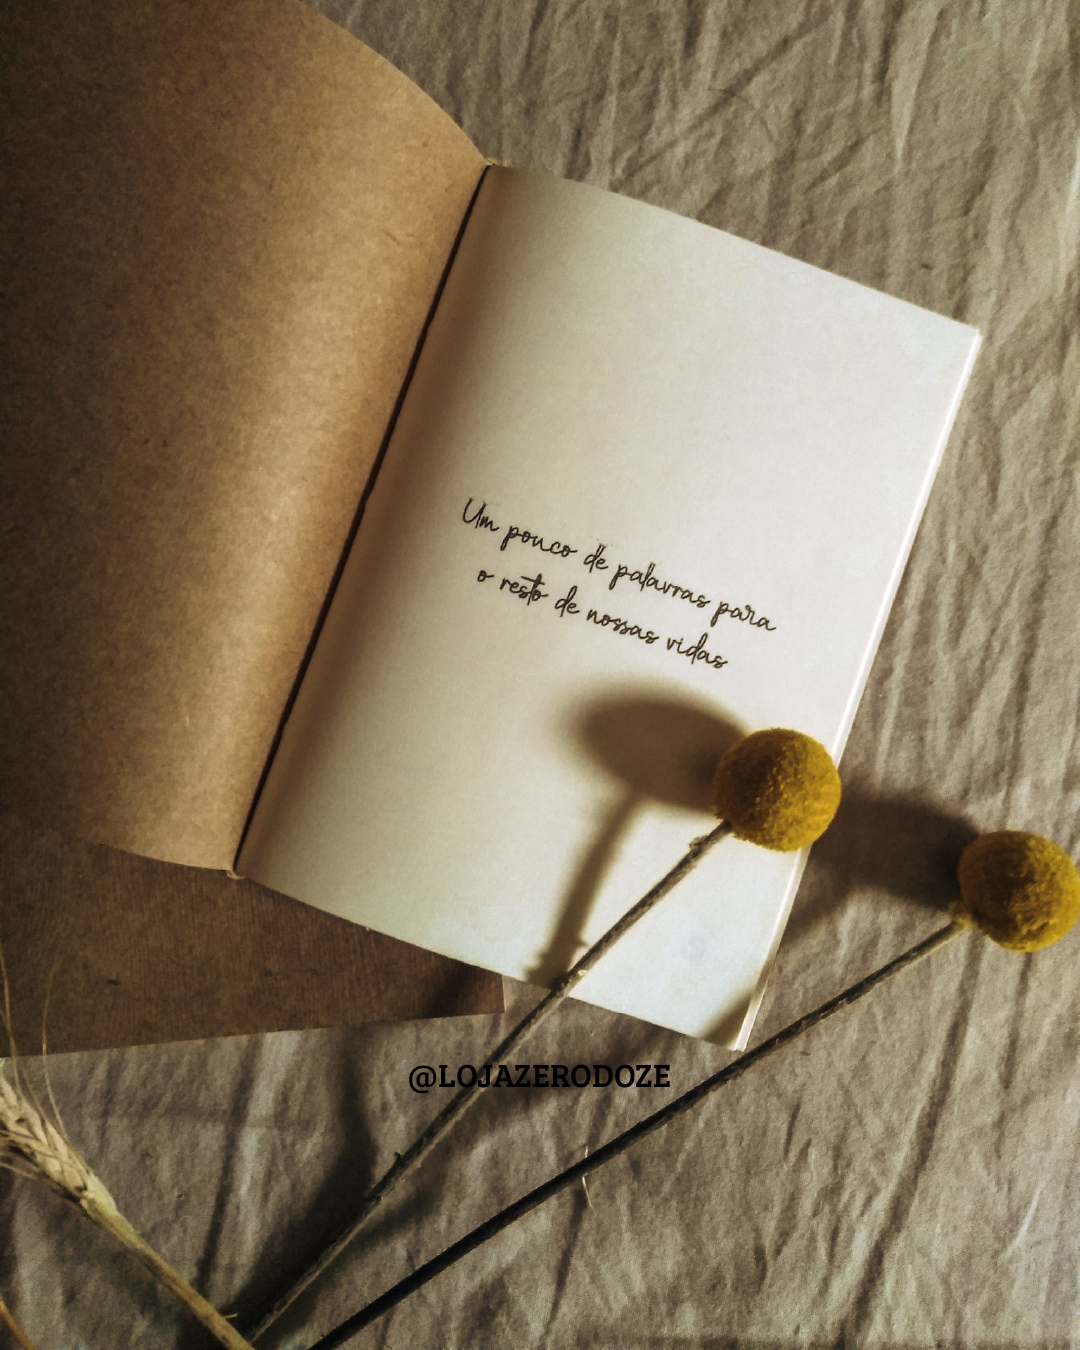 Um pouco de palavras para
o resto de nossas vidas
@LOJAZERODOZE